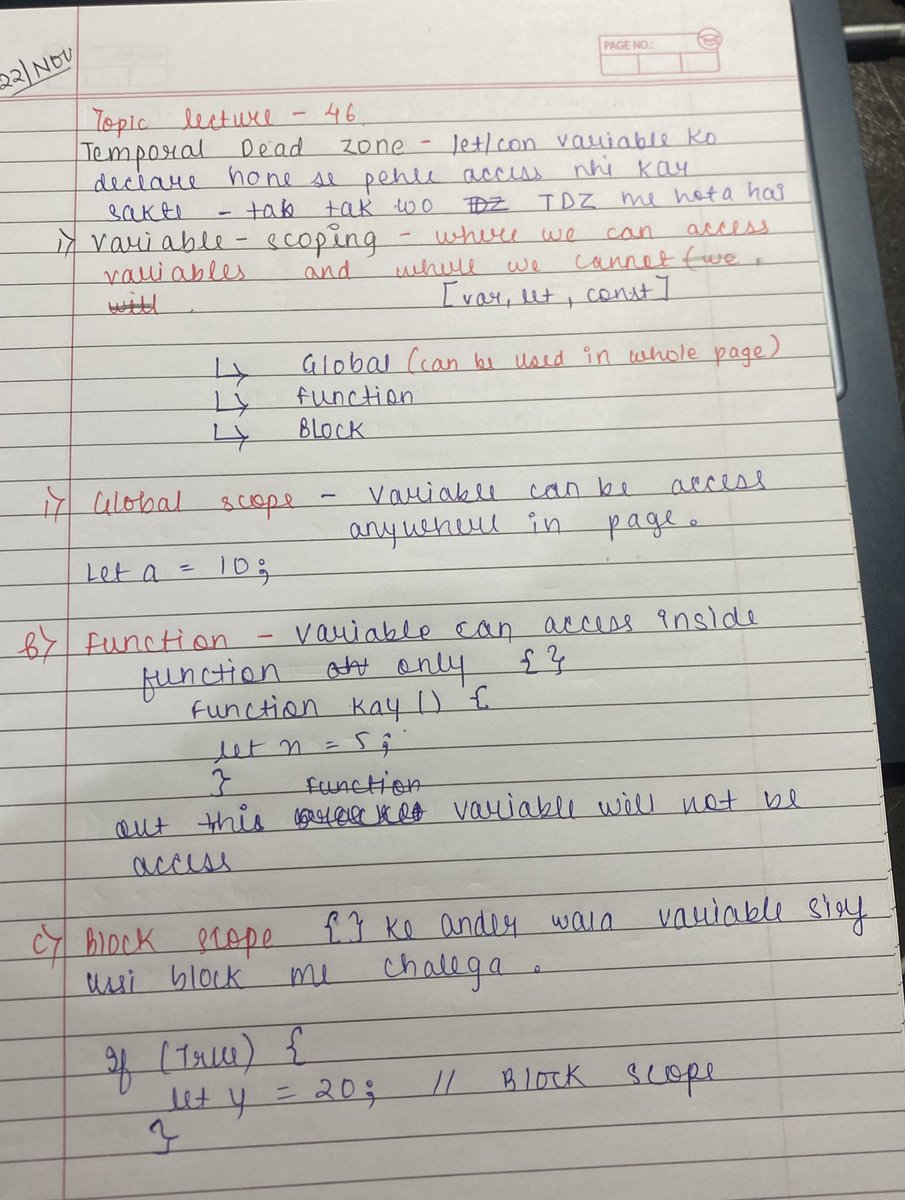 22/NOV
PAGE NO.:
Topic lecture - 46
Temporal Dead zone - let/con variable ko
declare hone se pehle access nhi kar
sakte - tab tak wo TDZ TDZ me hota hai
i) variable - scoping - where we can access
variables and where we cannot (we.
will.
[var, let, const]
↳ Global (can be used in whole page)
↳ Function
↳ Block
i) Global scope - variable can be access
anywhere in page.
Let a = 10;
b) Function - variable can access inside
function only { }
Function kay () {
let n = 5;
} function
out this variable will not be
access
c) Block scope { } ke ander wala variable sirf
ussi block me chalega.
If (True) {
let y = 20; // Block scope
}